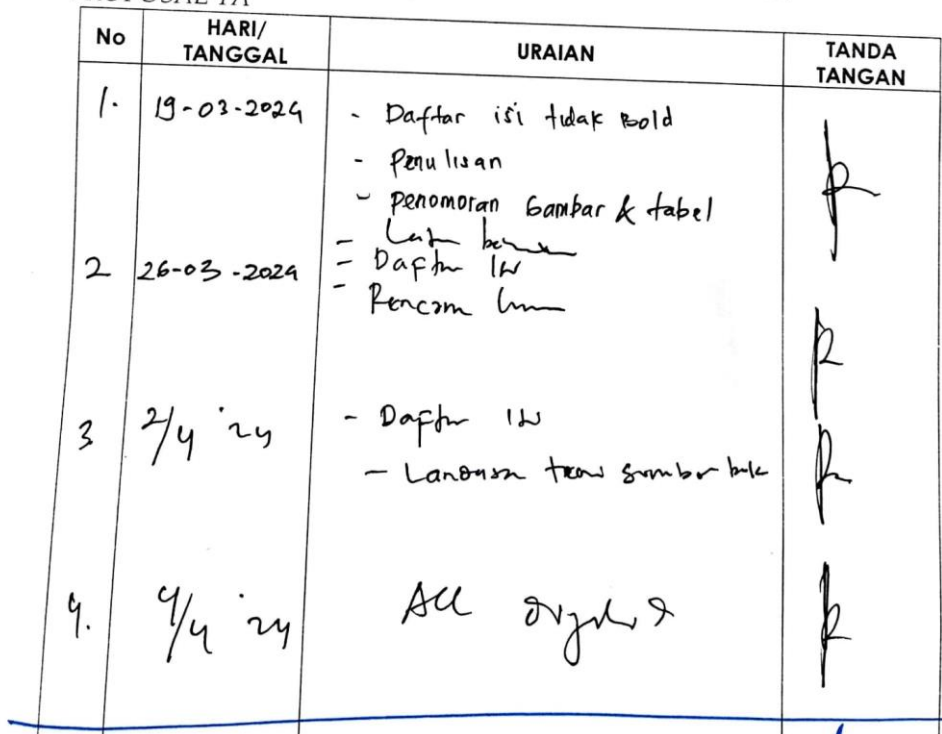 PROPOSAL TA
No HARI/ TANGGAL URAIAN TANDA TANGAN
1. 19-03-2024 - Daftar isi tidak Bold
- Penulisan
- Penomoran Gambar & tabel
- Latar
2 26-03-2024 - Daftar isi
- Rencana
3 2/4 '24 - Daftar isi
- Landasan teori sumber buku
4. 4/4 '24 ACC